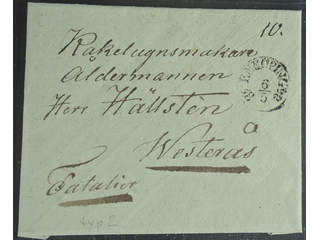 10.
Kakelugnsmakare
Åldermannen
Herr Hällstén
a
Westerås
Fatalier
6
5